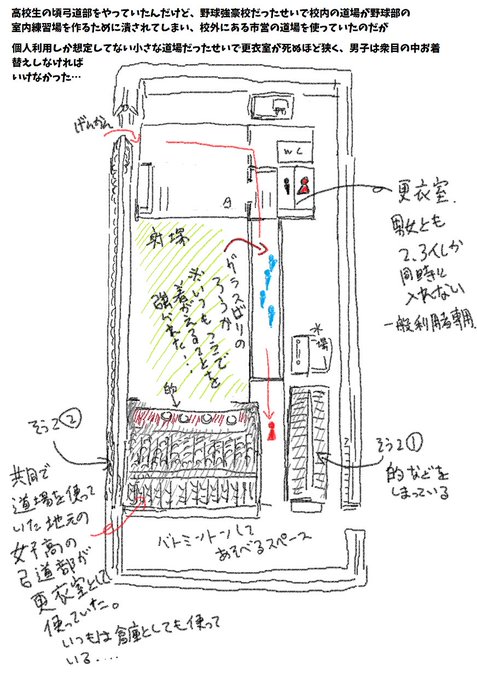 高校生の頃弓道部をやっていたんだけど、野球強豪校だったせいで校内の道場が野球部の
室内練習場を作るために潰されてしまい、校外にある市営の道場を使っていたのだが
個人利用しか想定してない小さな道場だったせいで更衣室が死ぬほど狭く、男子は衆目の中お着
替えしなければ
いけなかった…
げんかん
WC
更衣室
男女とも
2、3人しか
同時に
入れない
一般利用者専用
射場
グラスばりの
ろうか
米いつもココで
着がえることを
強いられた…
水場
的
そうこ②
共同で
道場を使って
いた地元の
女子高の
弓道部が
更衣室として
使っていた。
いつもは倉庫としても使って
いる....
そうこ①
的などを
しまっている
バトミントンして
あそべるスペース